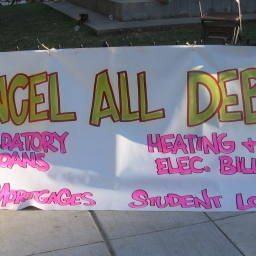 NCEL ALL DEB
DATORY
OANS
HEATING +
ELEC. BILL
MORTGAGES
STUDENT LO